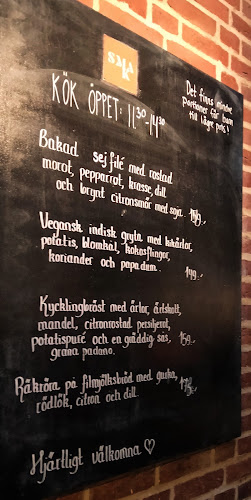 SMAK
KÖK ÖPPET: 11.30-14.30
Det finns mindre
portioner för barn
till lägre pris!
Bakad sejfilé med rostad
morot, pepparrot, krasse, dill
och brynt citronsmör med soja. 159.-
Vegansk indisk gryta med kikärtor,
potatis, blomkål, kokosflingor,
koriander och papadum. 149.-
Kycklingbröst med ärtor, ärtskott,
mandel, citronrostad persiljerot,
potatispuré och en gräddig sås, 159.-
grana padano.
Räkröra på filmjölksbröd med gurka,
rödlök, citron och dill.
Hjärtligt välkomna ♡